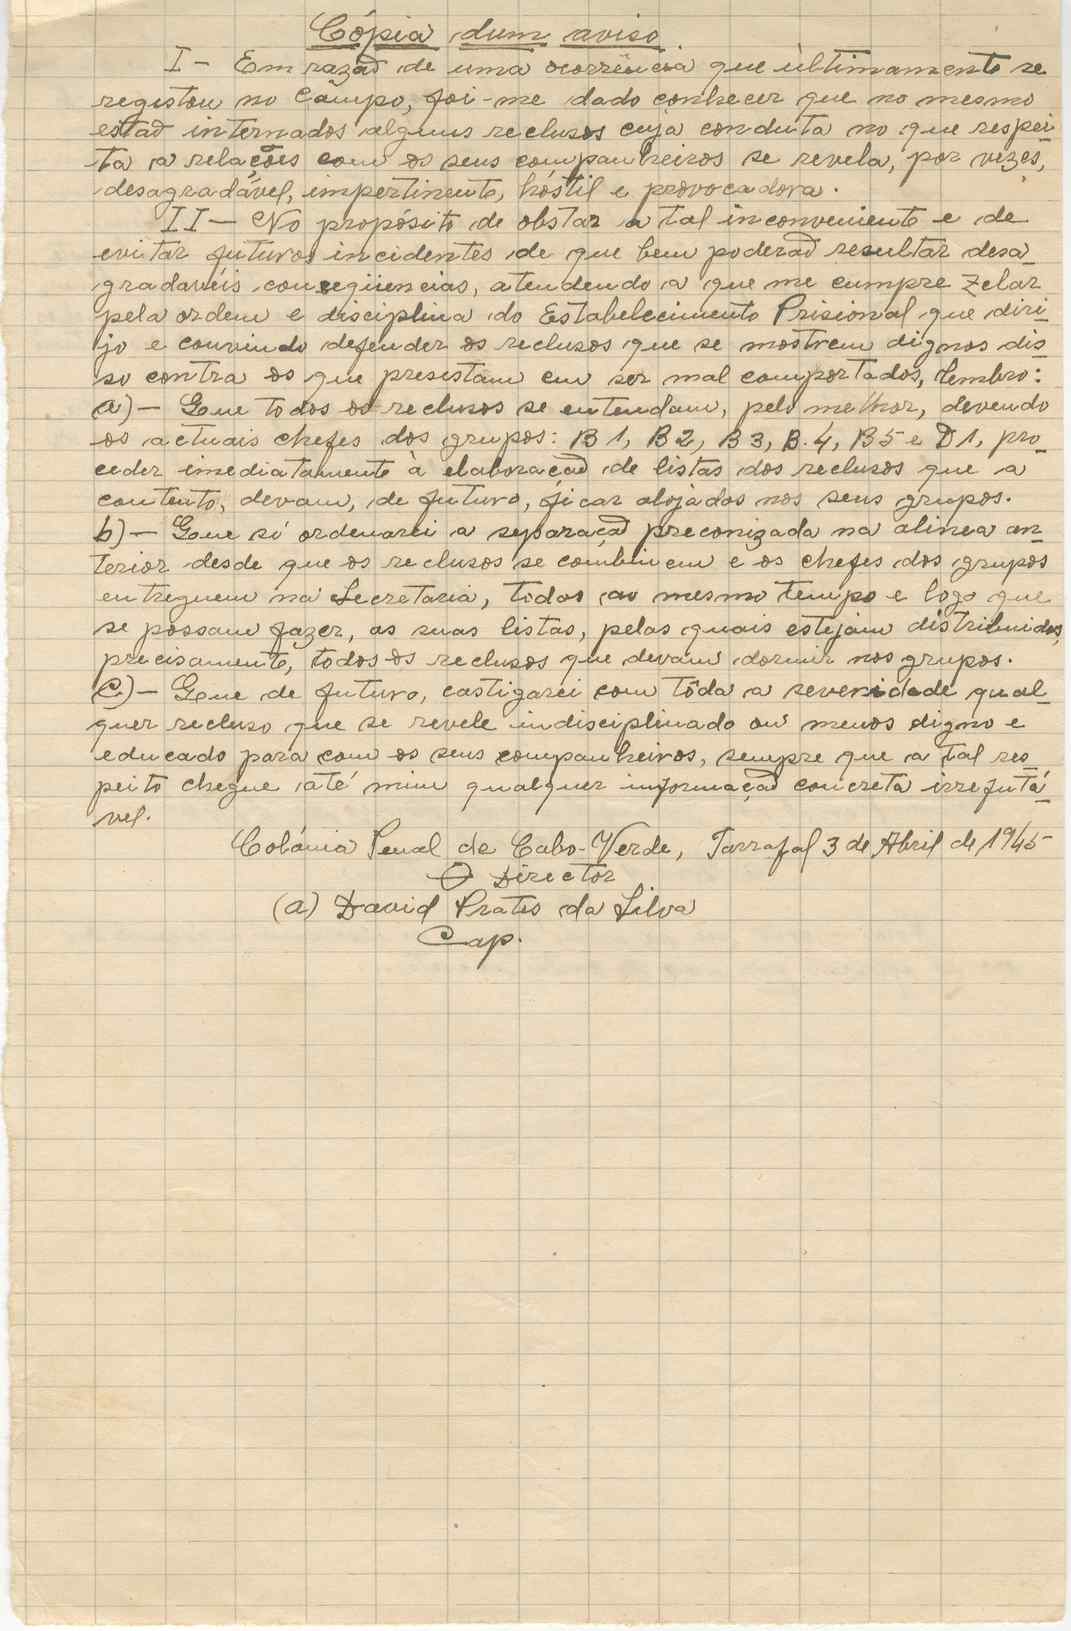 Cópia dum aviso
I - Em razão de uma ocorrência que últimamente se
registou no Campo, foi-me dado conhecer que no mesmo
estão internados alguns reclusos cuja conduta no que respei-
ta a relações com os seus companheiros se revela, por vezes,
desagradável, impertinente, hóstil e provocadora.
II - No propósito de obstar a tal inconveniente e de
evitar futuros incidentes de que bem poderão resultar desa-
gradavéis conseqüencias, atendendo a que me cumpre zelar
pela ordem e disciplina do Estabelecimento Prisional que diri-
jo e convindo defender os reclusos que se mostrem dignos dis-
so contra os que presistam em ser mal comportados, lembro:
a) - Que todos os reclusos se entendam, pelo melhor, devendo
os actuais chefes dos grupos: B1, B2, B3, B.4, B5 e D1, pro-
ceder imediatamente à elaboração de listas dos reclusos que a
contento, devam, de futuro, ficar alojados nos seus grupos.
b) - Que só ordenarei a separação preconizada na alinea an-
terior desde que os reclusos se combinem e os chefes dos grupos
entreguem na Secretaria, todos ao mesmo tempo e logo que
se possam fazer, as suas listas, pelas quais estejam distribuidos,
precisamente, todos os reclusos que devam dormir nos grupos.
C) - Que de futuro, castigarei com tôda a severidade qual-
quer recluso que se revele indisciplinado ou menos digno e
educado para com os seus companheiros, sempre que a tal res-
peito chegue até mim qualquer informação concreta irrefutá-
vel.
Colónia Penal de Cabo-Verde, Tarrafal 3 de Abril de 1945
O Director
(a) David Prates da Silva
Cap.